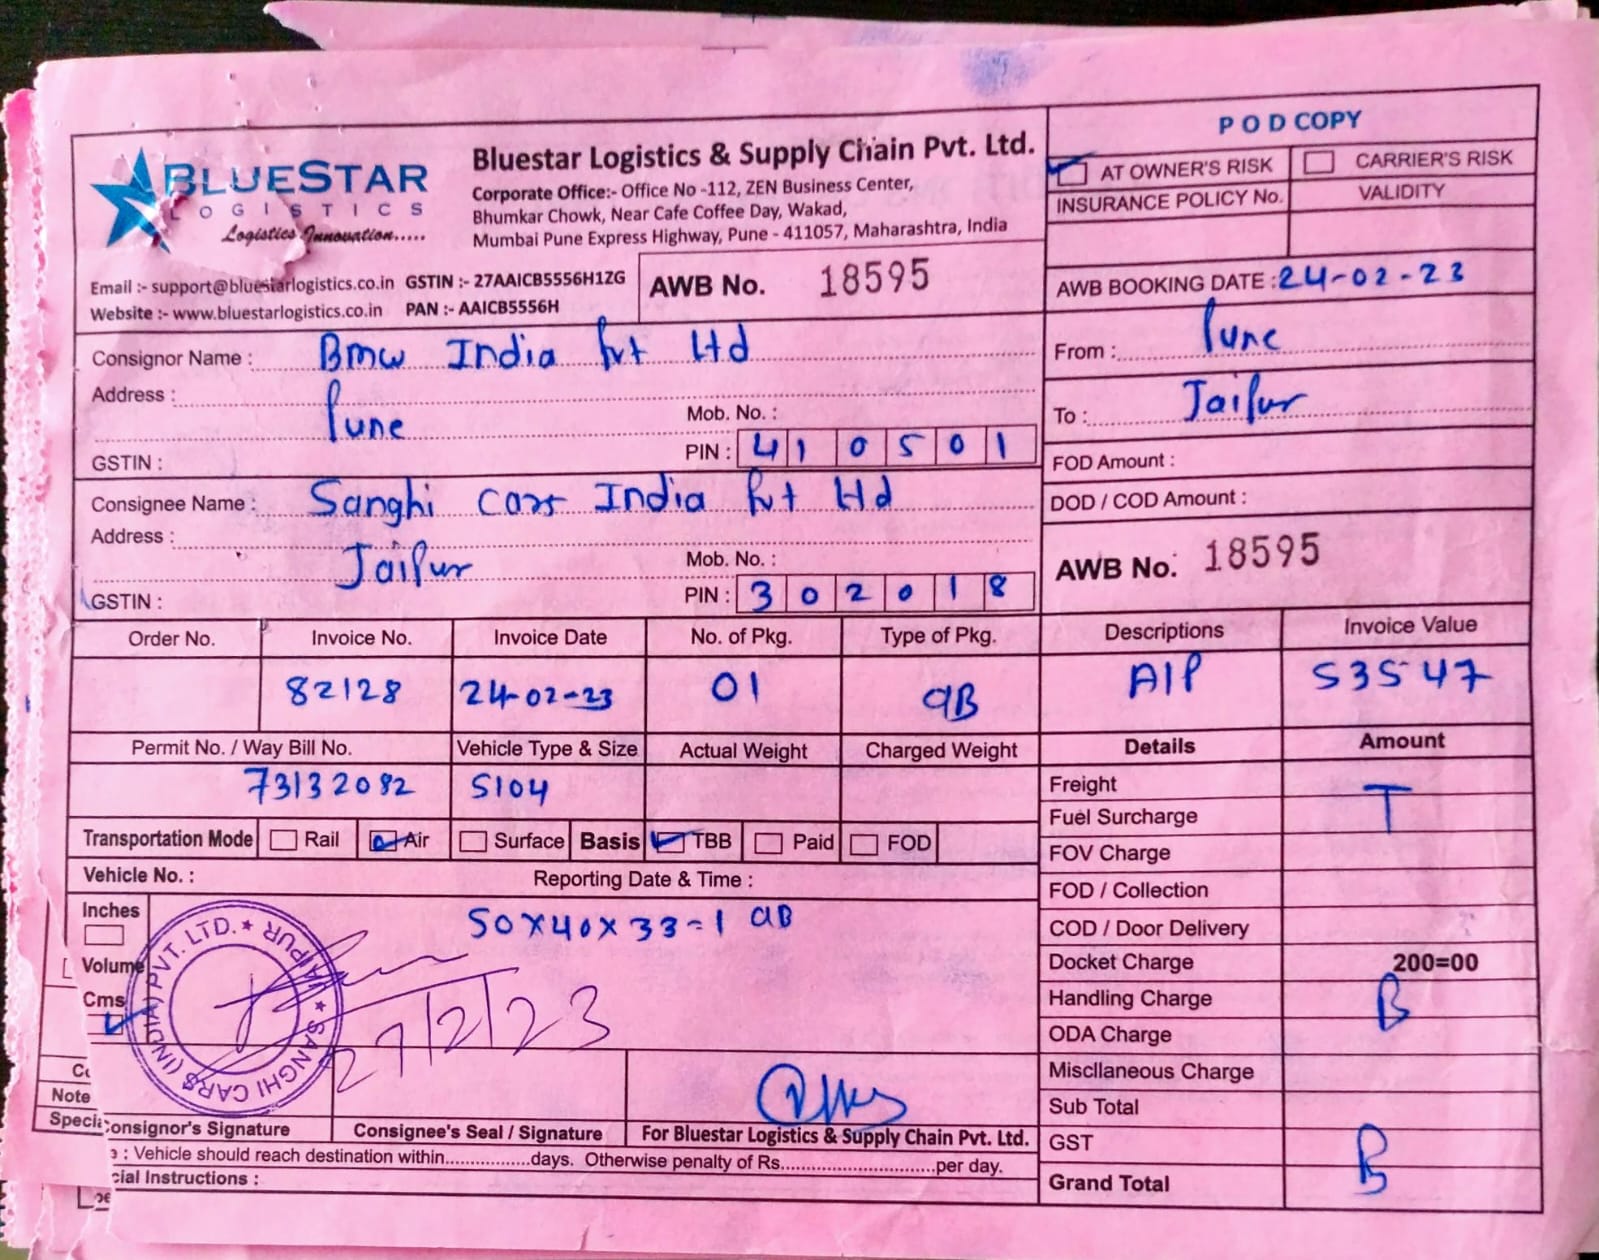 POD COPY
BLUESTAR
LOGISTICS
Logistics Innovation.....
Bluestar Logistics & Supply Chain Pvt. Ltd.
Corporate Office:- Office No -112, ZEN Business Center,
Bhumkar Chowk, Near Cafe Coffee Day, Wakad,
Mumbai Pune Express Highway, Pune - 411057, Maharashtra, India
AT OWNER'S RISK CARRIER'S RISK
INSURANCE POLICY No. VALIDITY
Email :- support@bluestarlogistics.co.in GSTIN :- 27AAICB5556H1ZG
Website :- www.bluestarlogistics.co.in PAN :- AAICB5556H
AWB No. 18595
AWB BOOKING DATE : 24-02-23
Consignor Name : Bmw India Pvt Ltd
Address :
Pune
Mob. No. :
GSTIN : PIN : 410501
From : Pune
To : Jaipur
FOD Amount :
DOD / COD Amount :
Consignee Name : Sanghi cars India Pvt Ltd
Address :
Jaipur
Mob. No. :
GSTIN : PIN : 302018
AWB No. 18595
Order No. Invoice No. Invoice Date No. of Pkg. Type of Pkg. Descriptions Invoice Value
82128 24-02-23 01 CIB AIP 53547
Permit No. / Way Bill No. Vehicle Type & Size Actual Weight Charged Weight Details Amount
73132082 5104
Transportation Mode Rail Air Surface Basis TBB Paid FOD
Vehicle No. : Reporting Date & Time :
Inches
Volume
Cms
50x40x33=1 CIB
SANGHI CARS (INDIA) PVT. LTD. ★ JAIPUR ★
27/2/23
Freight
T
Fuel Surcharge
FOV Charge
FOD / Collection
COD / Door Delivery
Docket Charge 200=00
Handling Charge
B
ODA Charge
Miscllaneous Charge
Sub Total
GST
B
Grand Total
Note
Consignor's Signature Consignee's Seal / Signature For Bluestar Logistics & Supply Chain Pvt. Ltd.
: Vehicle should reach destination within................days. Otherwise penalty of Rs............................per day.
cial Instructions :